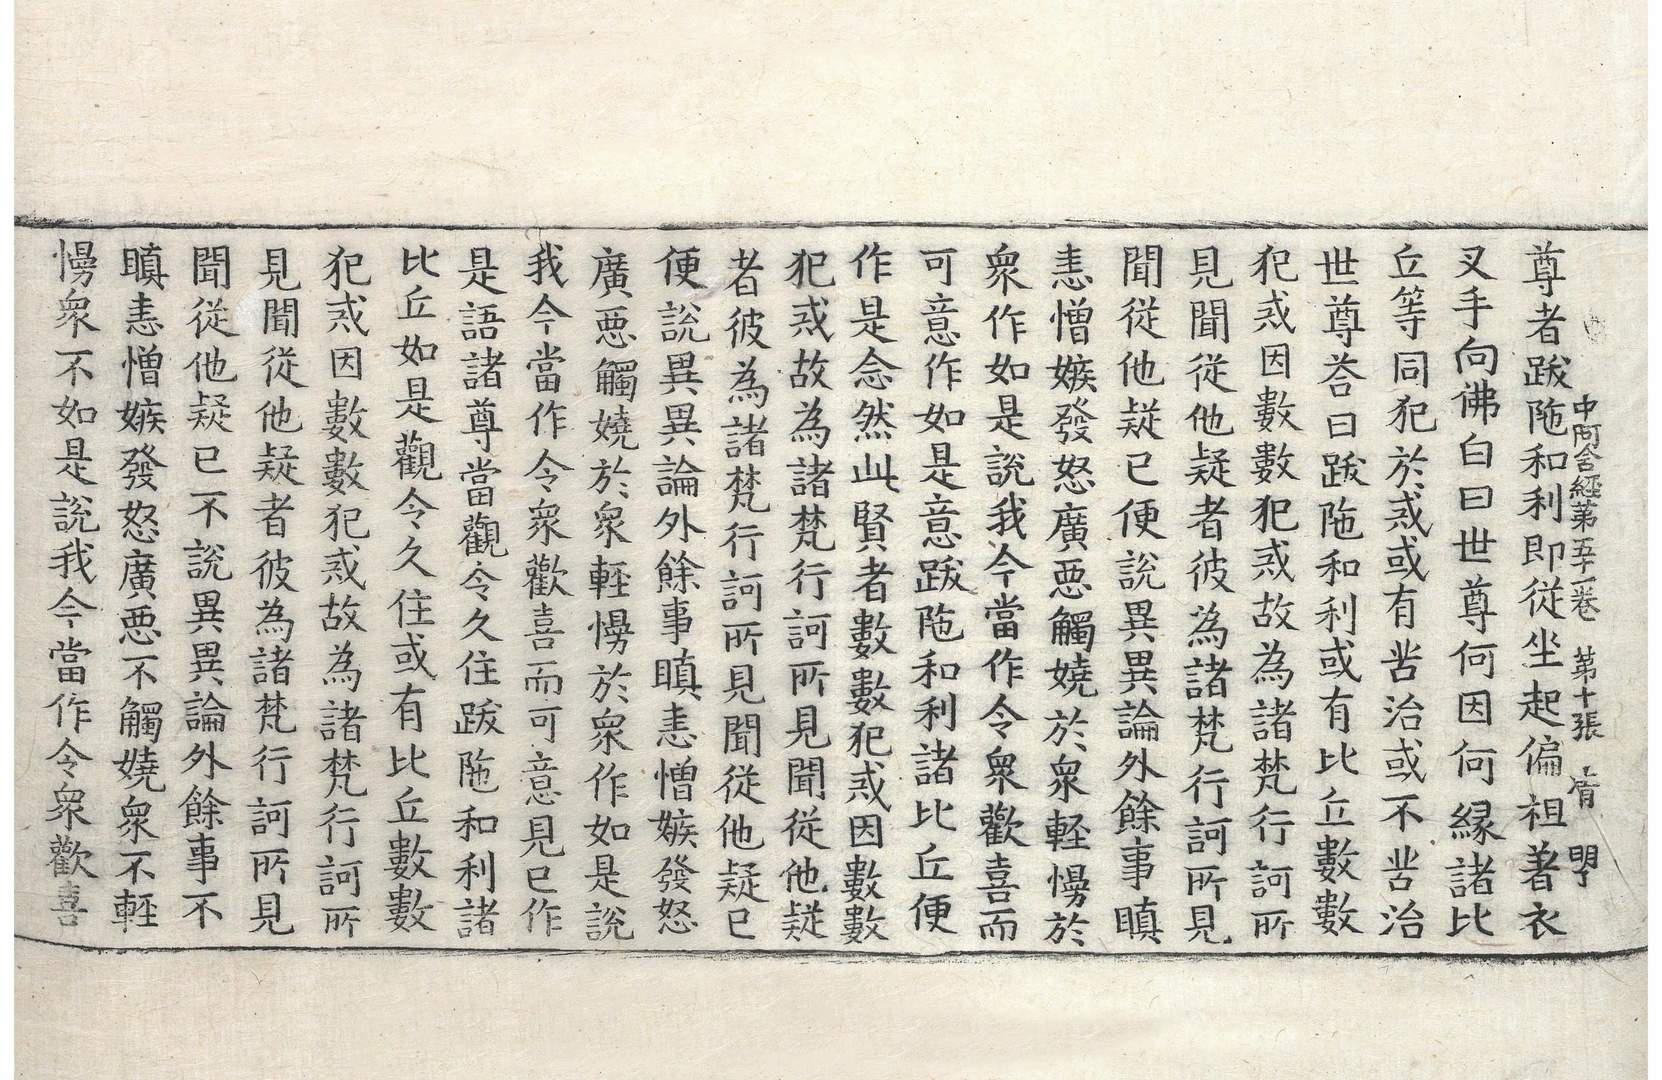 中阿含經第五十一卷 第十張
尊者跋陁和利即從坐起偏袒著衣
叉手向佛白曰世尊何因何緣諸比
丘等同犯於戒或有苦治或不苦治
世尊荅曰跋陁和利或有比丘數數
犯戒因數數犯戒故為諸梵行訶所
見聞從他疑者彼為諸梵行訶所見
聞從他疑已便說異異論外餘事瞋
恚憎嫉發怒廣惡觸嬈於衆輕慢於
衆作如是說我今當作令衆歡喜而
可意作如是意跋陁和利諸比丘便
作是念然此賢者數數犯戒因數數
犯戒故為諸梵行訶所見聞從他疑
者彼為諸梵行訶所見聞從他疑已
便說異異論外餘事瞋恚憎嫉發怒
廣惡觸嬈於衆輕慢於衆作如是說
我今當作令衆歡喜而可意見已作
是語諸尊當觀令久住跋陁和利諸
比丘如是觀令久住或有比丘數數
犯戒因數數犯戒故為諸梵行訶所
見聞從他疑者彼為諸梵行訶所見
聞從他疑已不說異異論外餘事不
瞋恚憎嫉發怒廣惡不觸嬈衆不輕
慢衆不如是說我今當作令衆歡喜